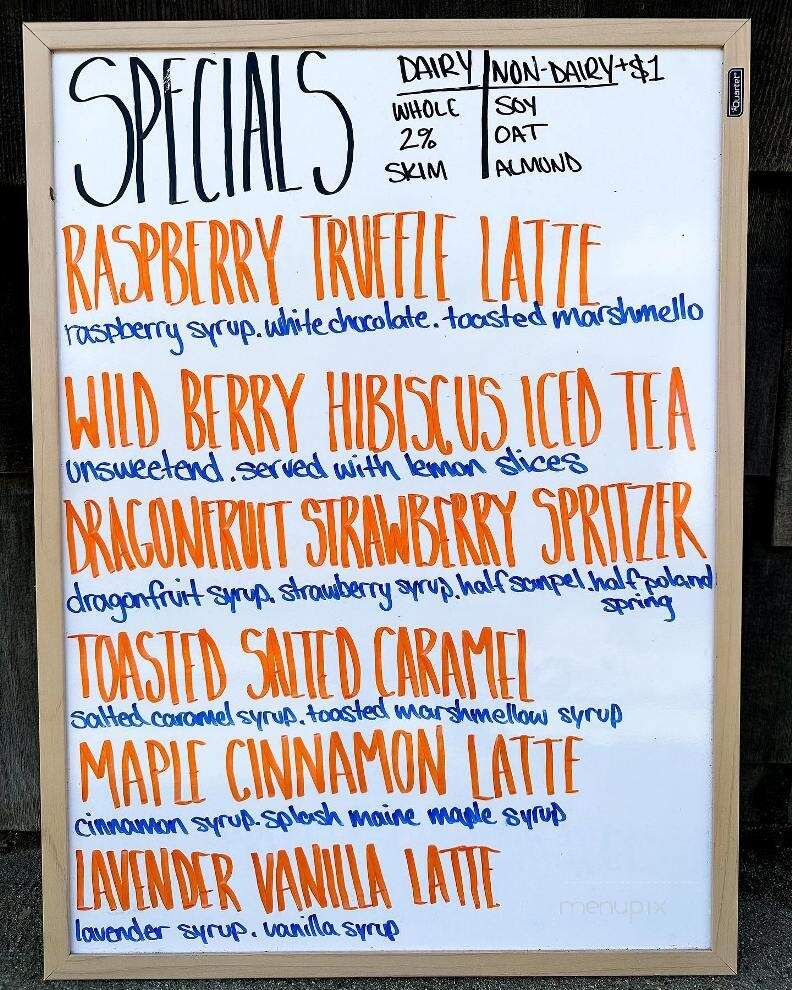 SPECIALS
DAIRY | NON-DAIRY +$1
WHOLE | SOY
2% | OAT
SKIM | ALMOND
Quartet
RASPBERRY TRUFFLE LATTE
raspberry syrup. white chocolate. toasted marshmello
WILD BERRY HIBISCUS ICED TEA
unsweetend. served with lemon slices
DRAGONFRUIT STRAWBERRY SPRITZER
dragonfruit syrup. strawberry syrup. half sanpel. half poland
spring
TOASTED SALTED CARAMEL
salted caramel syrup. toasted marshmellow syrup
MAPLE CINNAMON LATTE
cinnamon syrup. splash maine maple syrup
LAVENDER VANILLA LATTE
lavender syrup. vanilla syrup
menupix